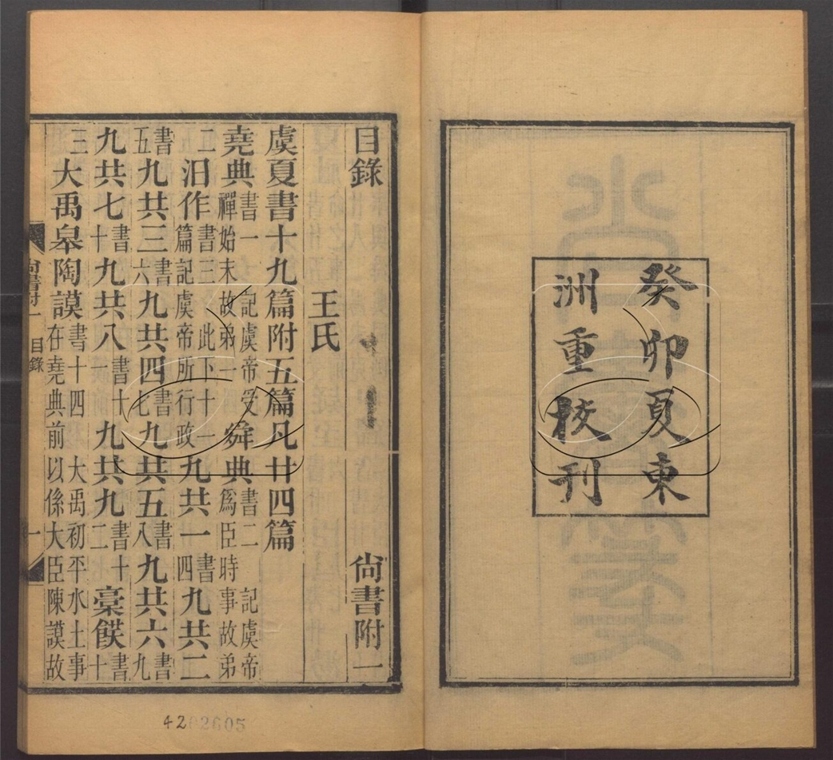 癸卯夏東
洲重校刊
目錄 尙書附一
王氏
虞夏書十九篇附五篇凡廿四篇
堯典書一 記虞帝受禪始末故弟一舜典書二 記虞帝爲臣時事故弟
二汨作書三 此下十一篇記虞帝所行政九共一書四九共二
書五九共三書六九共四書七九共五書八九共六書九
九共七書十九共八書十一九共九書十二槀飫書十
三大禹皋陶謨書十四 大禹初平水土事在堯典前以係大臣陳謨故
尙書附一 目錄 一
4202605